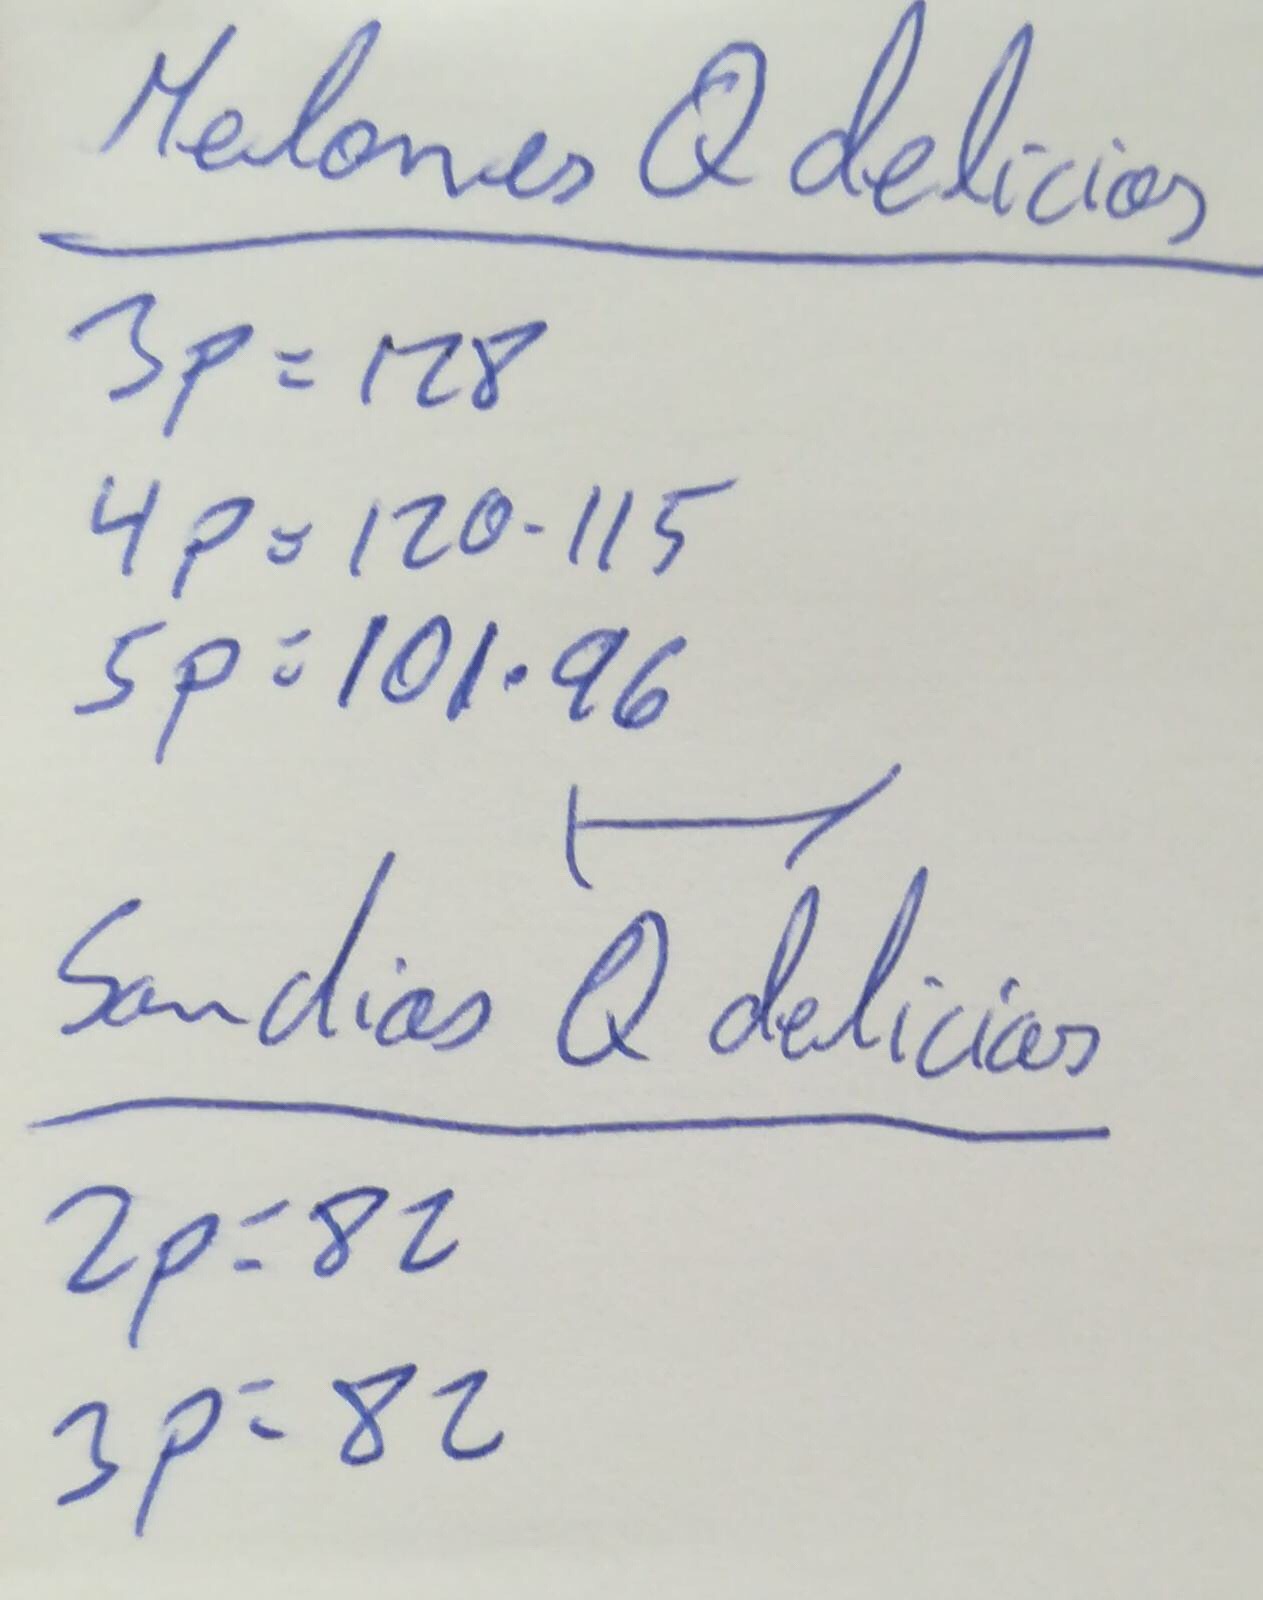 Melones Q delicias
3p = 128
4p = 120-115
5p = 101.96
Sandias Q delicias
2p = 82
3p = 82